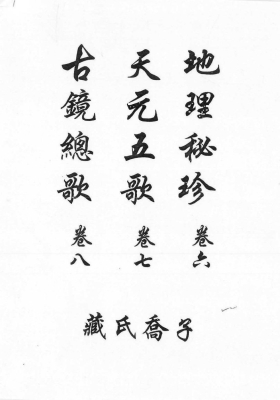 地理秘珍 卷六
天元五歌 卷七
古鏡總歌 卷八
藏氏喬子